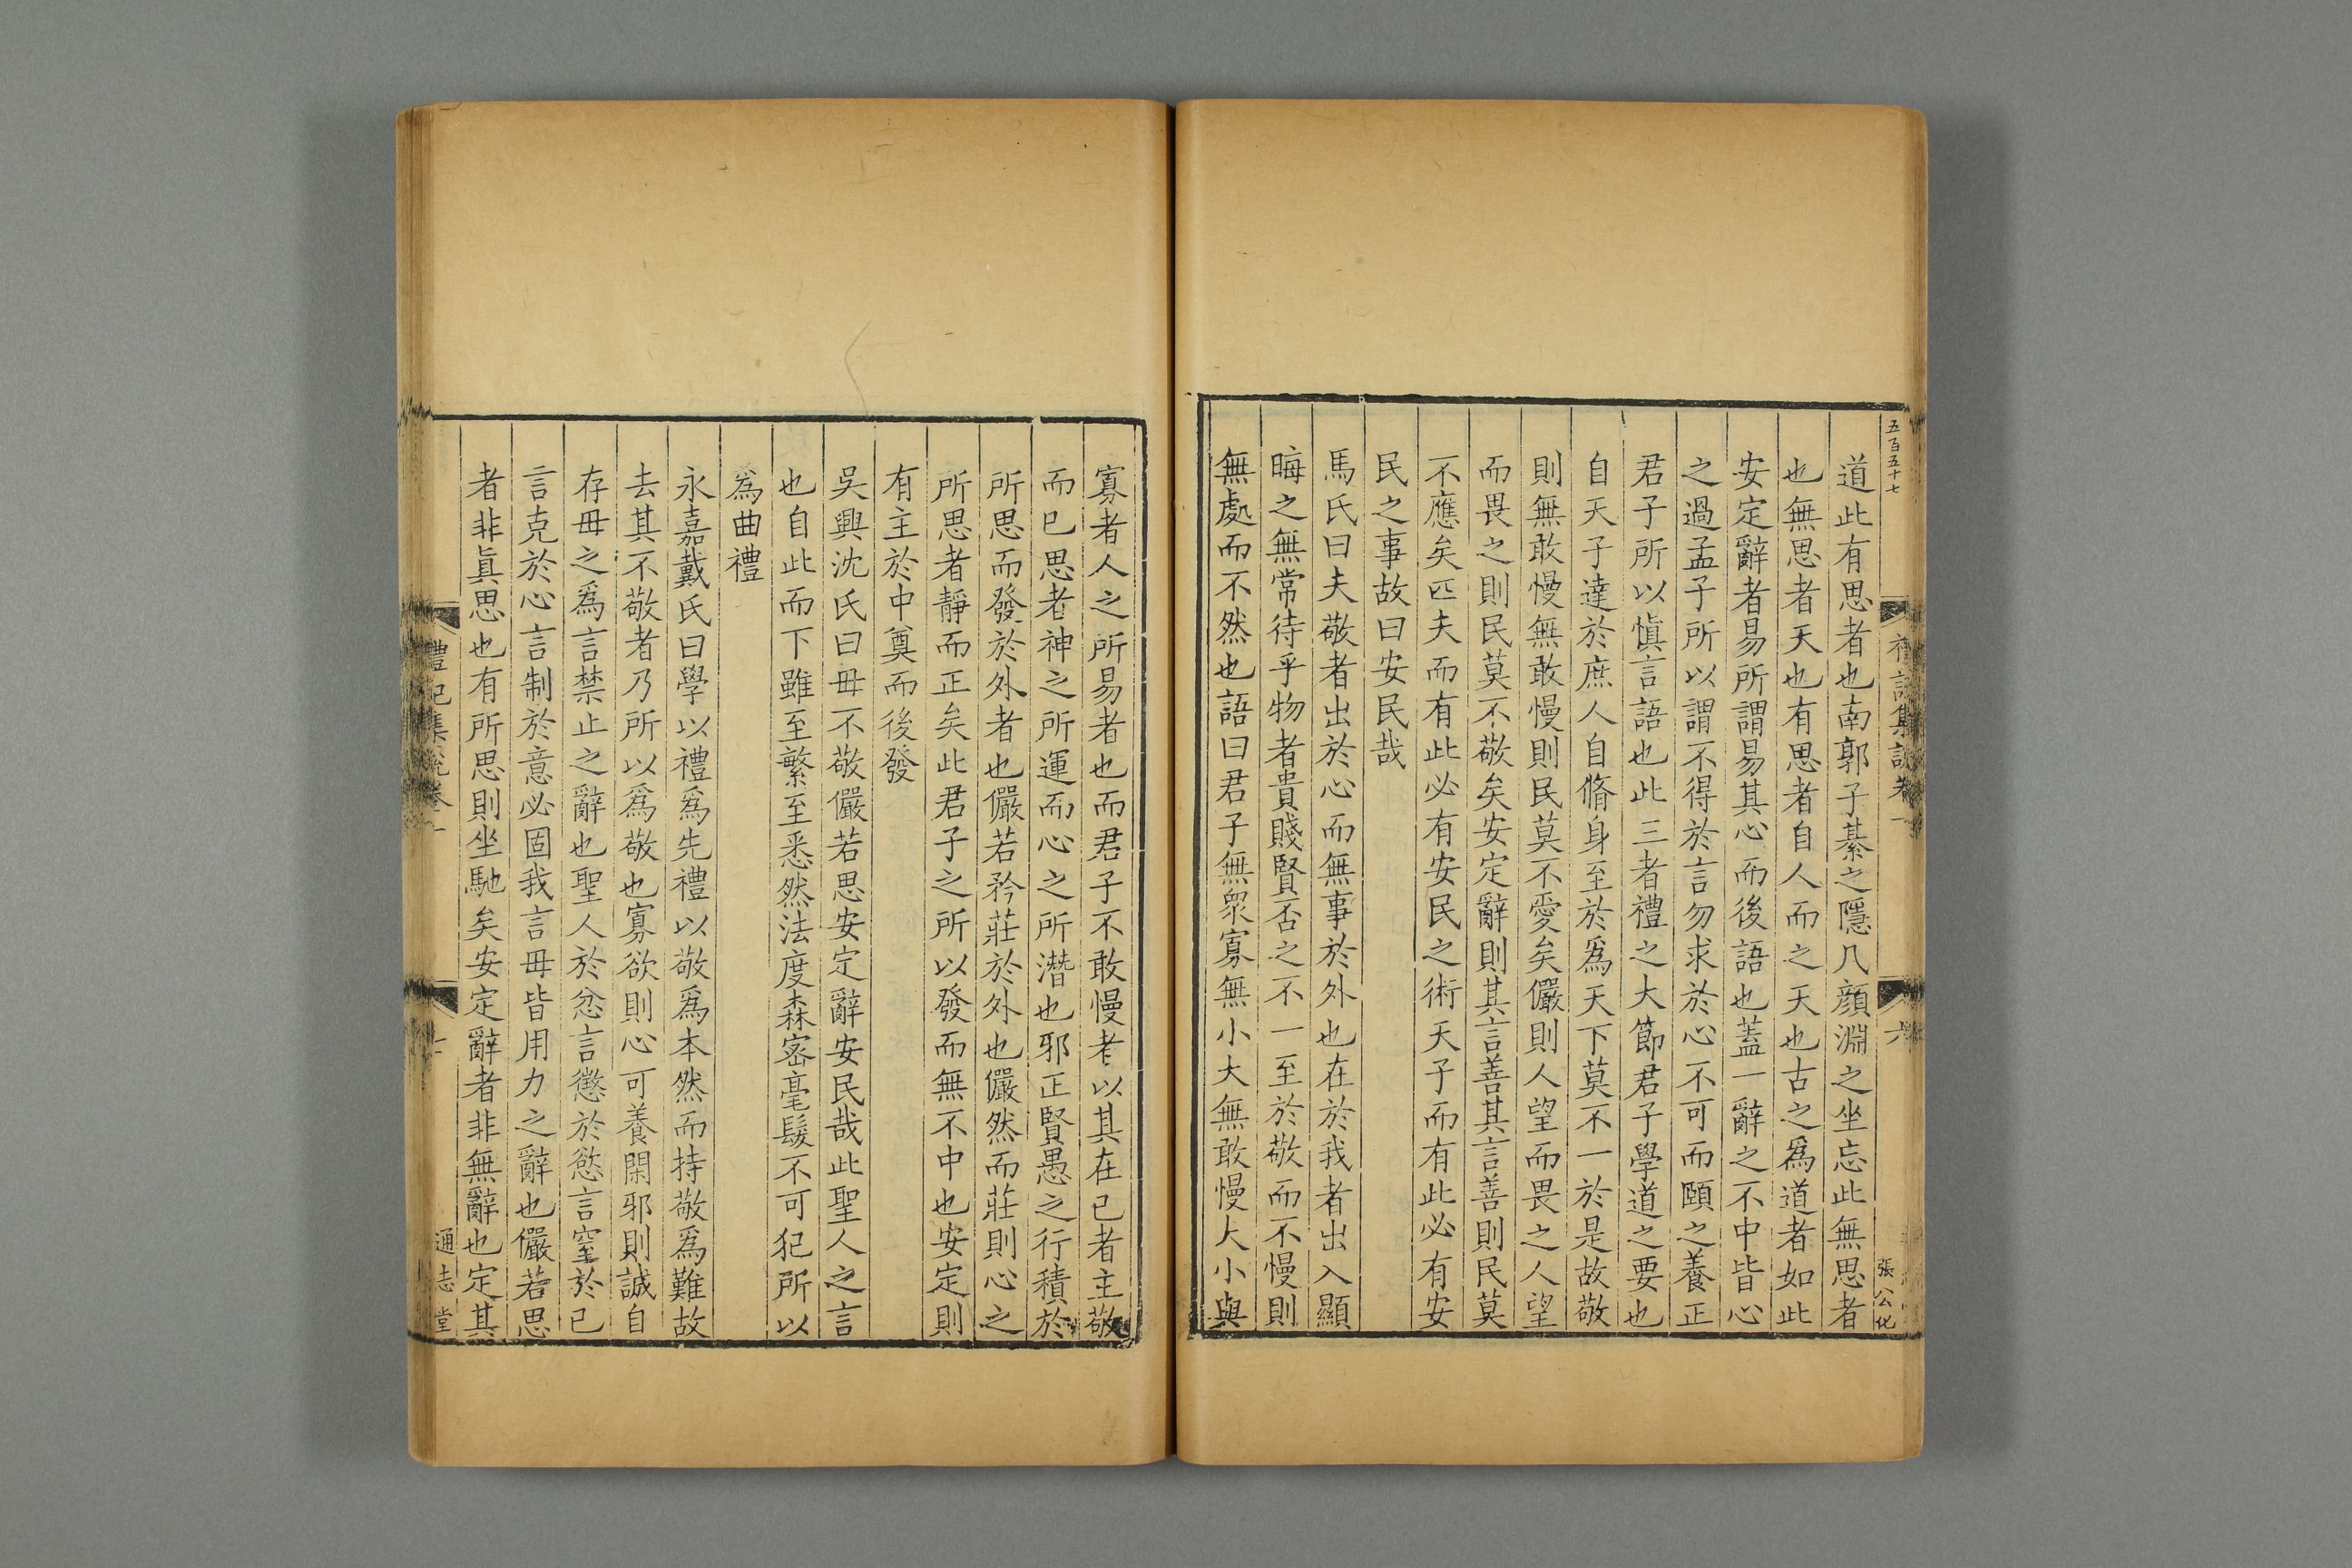 五百五十七
禮記集說卷一
六
張公化
道此有思者也南郭子綦之隱几顏淵之坐忘此無思者
也無思者天也有思者自人而之天也古之爲道者如此
安定辭者易所謂易其心而後語也蓋一辭之不中皆心
之過孟子所以謂不得於言勿求於心不可而頤之養正
君子所以慎言語也此三者禮之大節君子學道之要也
自天子達於庶人自脩身至於爲天下莫不一於是故敬
則無敢慢無敢慢則民莫不愛矣儼則人望而畏之人望
而畏之則民莫不敬矣安定辭則其言善其言善則民莫
不應矣匹夫而有此必有安民之術天子而有此必有安
民之事故曰安民哉
馬氏曰夫敬者出於心而無事於外也在於我者出入顯
晦之無常待乎物者貴賤賢否之不一至於敬而不慢則
無處而不然也語曰君子無衆寡無小大無敢慢大小與
寡者人之所易者也而君子不敢慢者以其在已者主敬
而已思者神之所運而心之所潛也邪正賢愚之行積於
所思而發於外者也儼若矜莊於外也儼然而莊則心之
所思者靜而正矣此君子之所以發而無不中也安定則
有主於中奠而後發
吳興沈氏曰毋不敬儼若思安定辭安民哉此聖人之言
也自此而下雖至繁至悉然法度森密毫髮不可犯所以
爲曲禮
永嘉戴氏曰學以禮爲先禮以敬爲本然而持敬爲難故
去其不敬者乃所以爲敬也寡欲則心可養閑邪則誠自
存毋之爲言禁止之辭也聖人於忿言懲於慾言窒於已
言克於心言制於意必固我言毋皆用力之辭也儼若思
者非眞思也有所思則坐馳矣安定辭者非無辭也定其
禮記集說卷一
七
通志堂